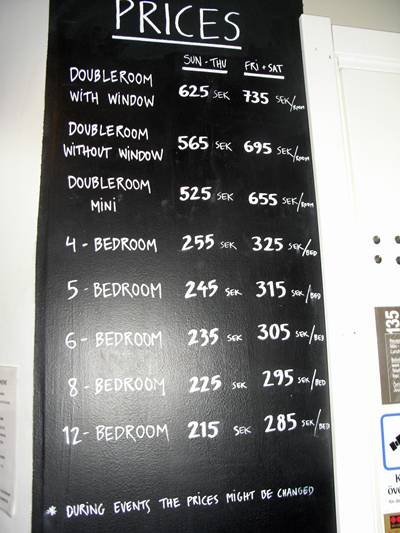 PRICES
SUN - THU FRI + SAT
DOUBLEROOM
WITH WINDOW 625 SEK 735 SEK/ROOM
DOUBLEROOM
WITHOUT WINDOW 565 SEK 695 SEK/ROOM
DOUBLEROOM
MINI 525 SEK 655 SEK/ROOM
4 - BEDROOM 255 SEK 325 SEK/BED
5 - BEDROOM 245 SEK 315 SEK/BED
6 - BEDROOM 235 SEK 305 SEK/BED
8 - BEDROOM 225 SEK 295 SEK/BED
12 - BEDROOM 215 SEK 285 SEK/BED
* DURING EVENTS THE PRICES MIGHT BE CHANGED
135